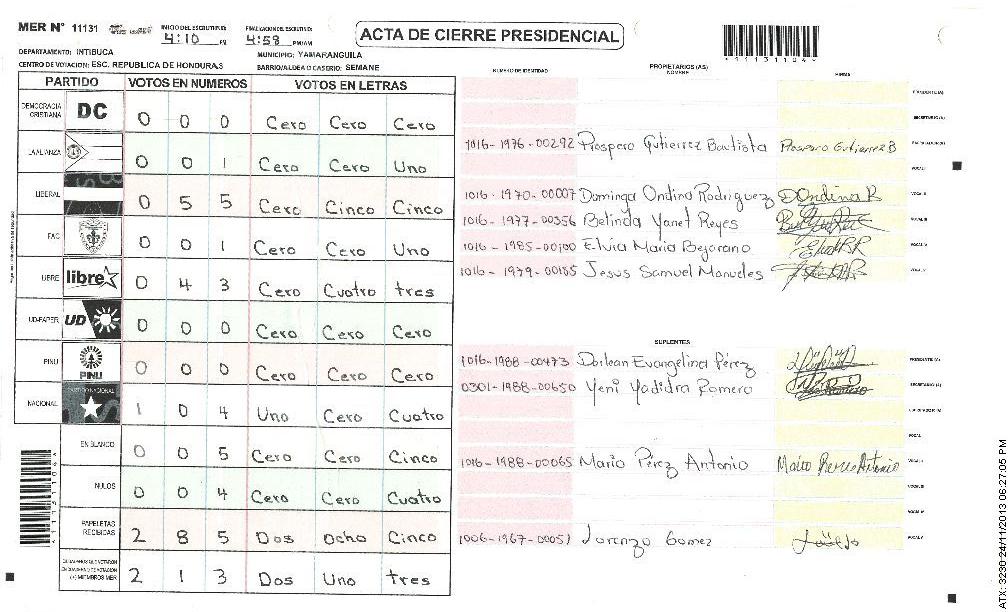 MER N° 11131 INICIO DEL ESCRUTINIO: 4:10 PM FINALIZACION DEL ESCRUTINIO: 4:58 PM/AM
ACTA DE CIERRE PRESIDENCIAL
DEPARTAMENTO: INTIBUCA MUNICIPIO: YAMARANGUILA
CENTRO DE VOTACION: ESC. REPUBLICA DE HONDURAS BARRIO/ALDEA O CASERIO: SEMANE
PARTIDO VOTOS EN NUMEROS VOTOS EN LETRAS
DEMOCRACIA CRISTIANA DC 0 0 0 Cero Cero Cero
LA ALIANZA 0 0 1 Cero Cero Uno
LIBERAL 0 5 5 Cero Cinco Cinco
FAC 0 0 1 Cero Cero Uno
LIBRE libre 0 4 3 Cero Cuatro tres
UD-FAPER UD 0 0 0 Cero Cero Cero
PINU PINU 0 0 0 Cero Cero Cero
NACIONAL 1 0 4 Uno Cero Cuatro
EN BLANCO 0 0 5 Cero Cero Cinco
NULOS 0 0 4 Cero Cero Cuatro
PAPELETAS RECIBIDAS 2 8 5 Dos Ocho Cinco
(+) MIEMBROS MER 2 1 3 Dos Uno tres
NUMERO DE IDENTIDAD PROPIETARIOS (AS) NOMBRE FIRMA
PRESIDENTE (A)
SECRETARIO (A)
1016-1976-00292 Prospero Gutierrez Bautista Prospero Gutierrez B
VOCAL I
1016-1970-00007 Dominga Ondina Rodriguez D Ondina R VOCAL II
1016-1977-00356 Belinda Yanet Reyes VOCAL III
1016-1985-00100 Elvia Maria Bejarano VOCAL IV
1016-1979-00185 Jesus Samuel Manueles VOCAL V
SUPLENTES
1016-1988-00473 Dorlean Evangelina Pérez PRESIDENTE (A)
0301-1988-00650 Yeni Yadidra Romero SECRETARIO (A)
VOCAL I
1016-1988-00065 Mario Pérez Antonio VOCAL II
VOCAL III
VOCAL IV
1006-1967-00051 Lorenzo Gomez VOCAL V
ATX: 3230-24/11/2013 06:27:05 PM